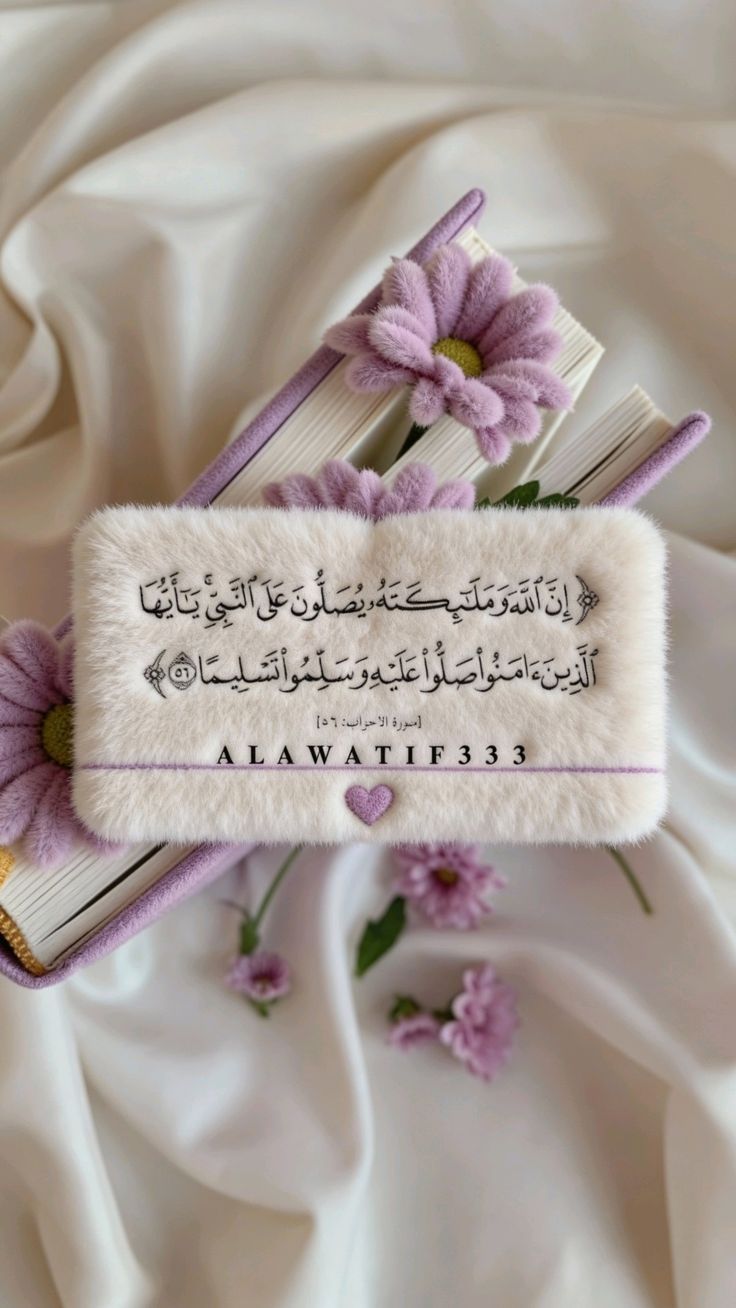 ﴿إِنَّ ٱللَّهَ وَمَلَـٰٓئِكَتَهُۥ يُصَلُّونَ عَلَى ٱلنَّبِيِّ ۚ يَـٰٓأَيُّهَا
ٱلَّذِينَ ءَامَنُوا۟ صَلُّوا۟ عَلَيْهِ وَسَلِّمُوا۟ تَسْلِيمًا ٥٦﴾
[سورة الاحزاب: ٥٦]
ALAWATIF333